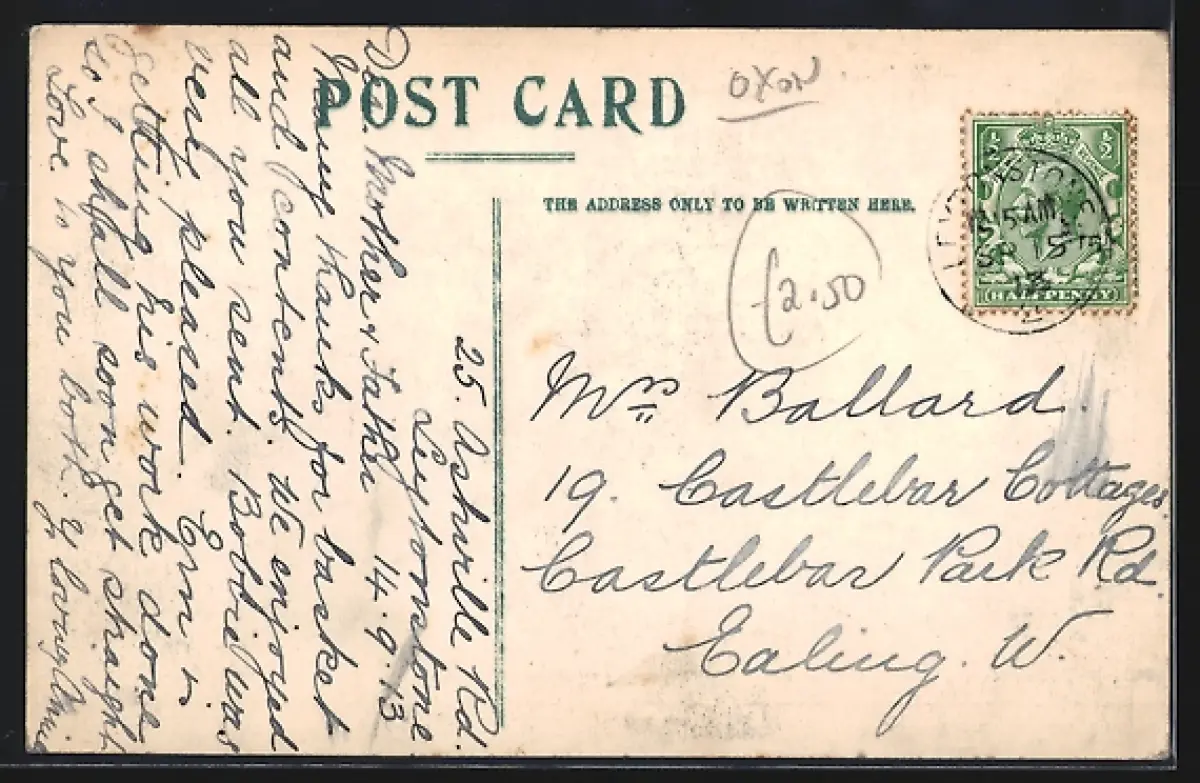 POST CARD
OXON
THE ADDRESS ONLY TO BE WRITTEN HERE.
£2.50
½ ½
HALFPENNY
LEYTONSTONE
15 AM
SP 15
13
Mrs Ballard.
19. Castlebar Cottages.
Castlebar Park Rd.
Ealing. W.
25. Ashville Rd.
Leytonstone
14.9.13
Dear Mother & Father
Many thanks for basket
and contents. We enjoyed
all you sent. Bobbie was
very pleased. Ern is
getting his work done
so I shall soon get straight
Love to you both. Yr loving Annie